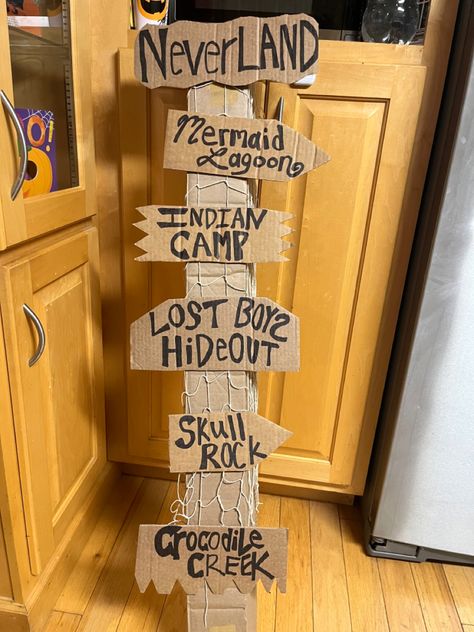 NeverLAND
Mermaid
Lagoon
INDIAN
CAMP
LOST BOYS
HiDeOUT
SKull
ROCK
CROCODiLE
CREEK